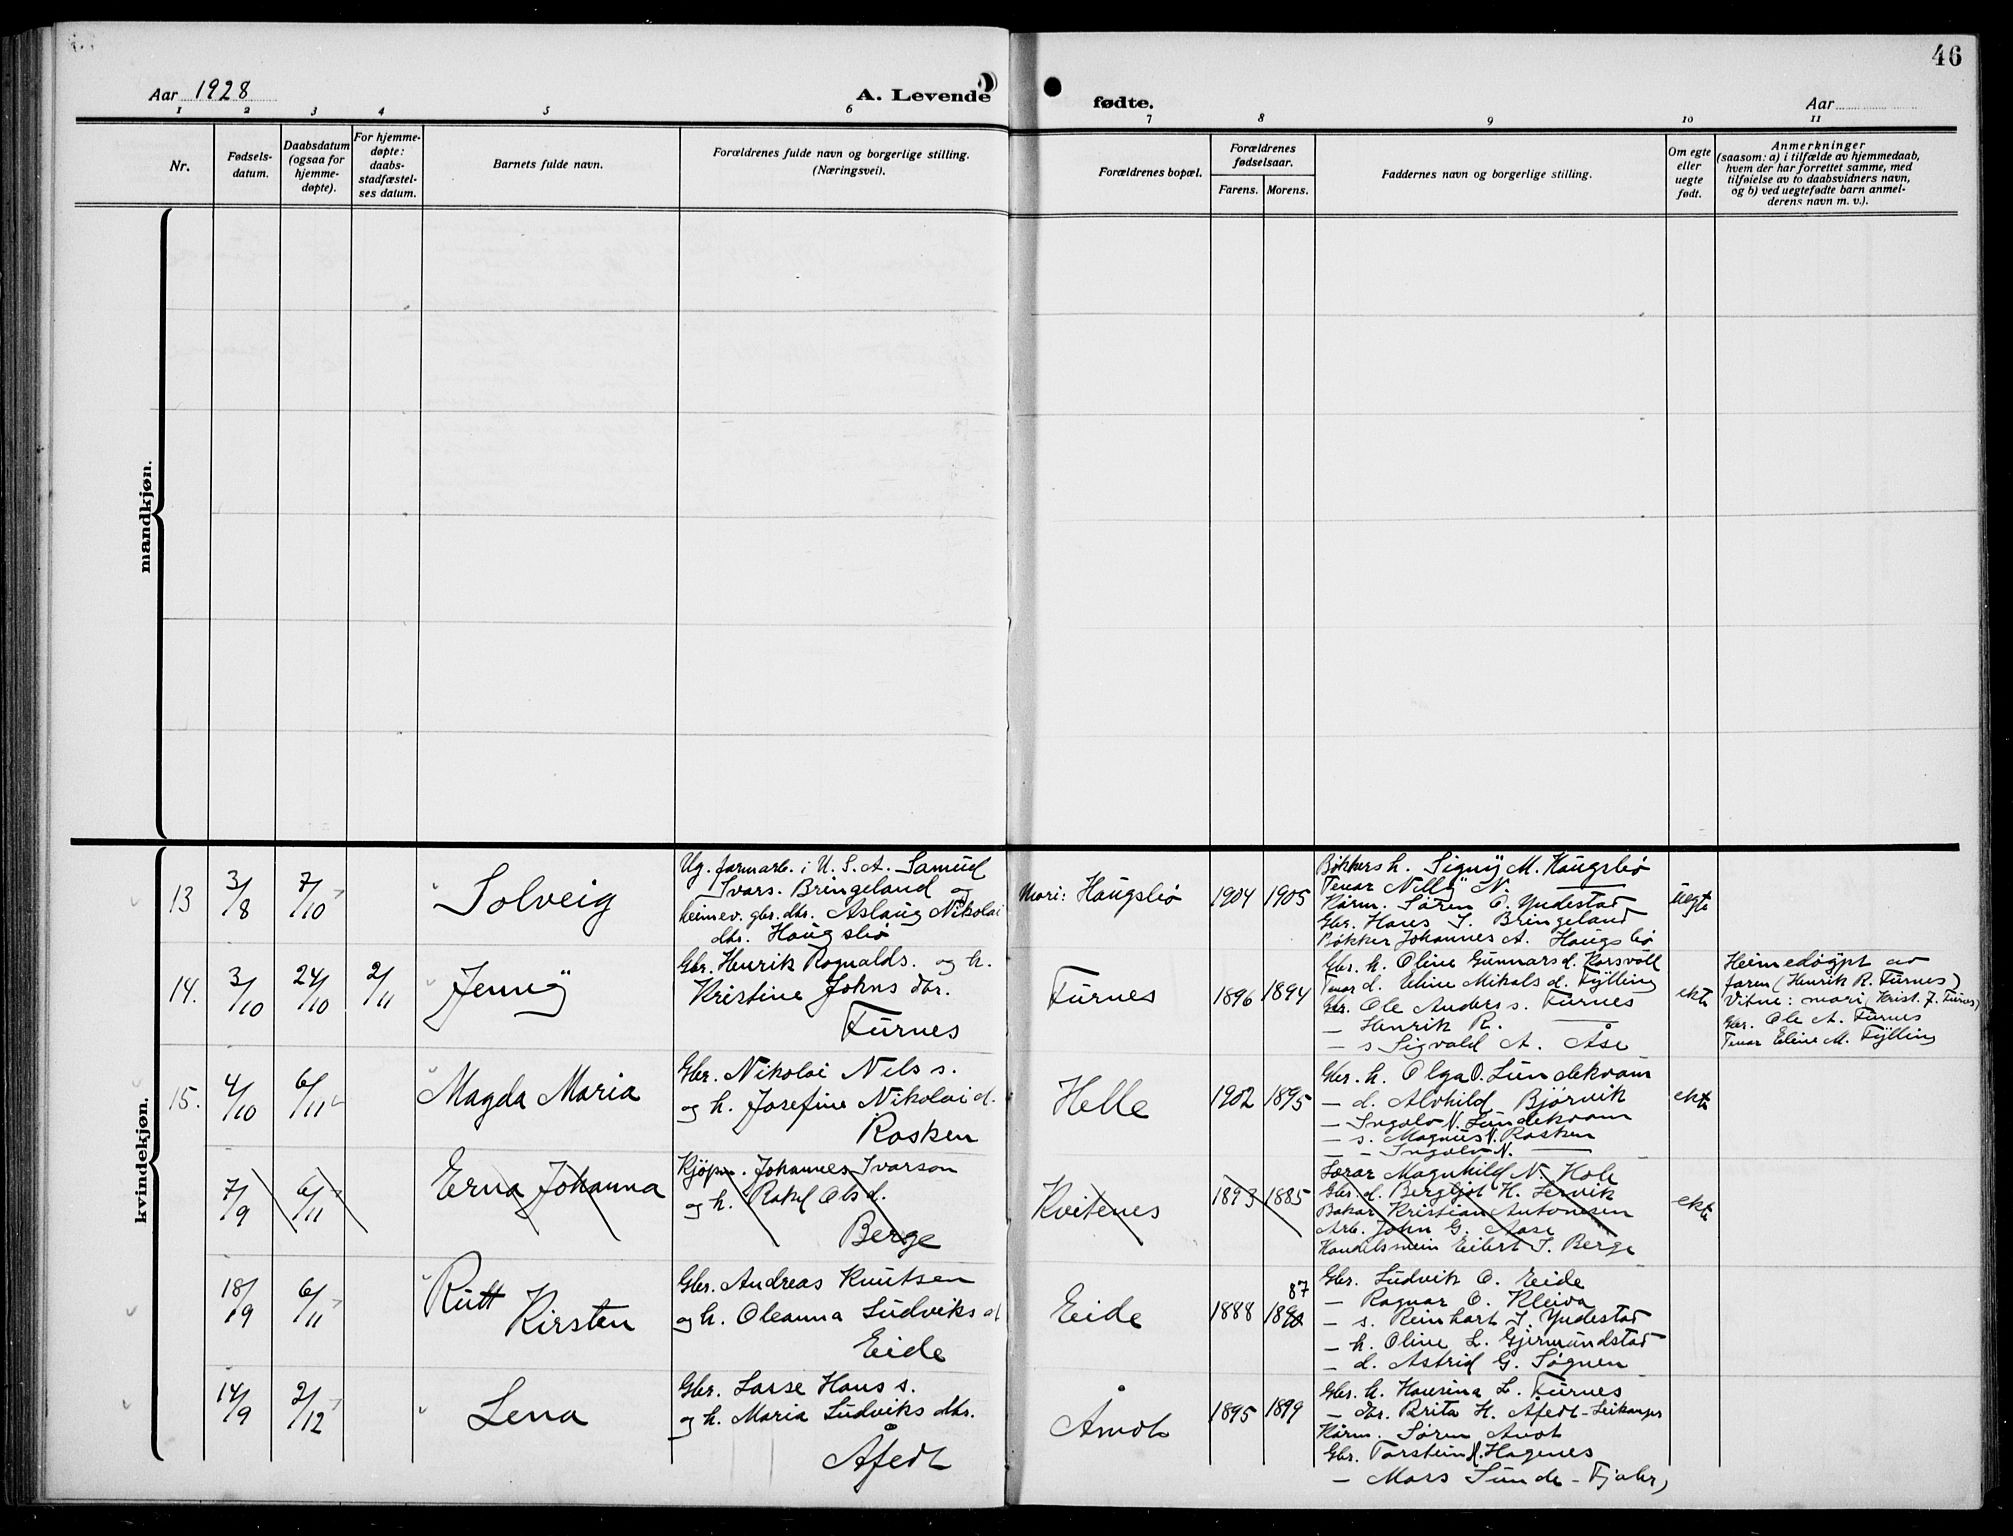 46
Aar 1928
A. Levende
fødte.
Aar
1 2 3 4 5 6 7 8 9 10 11
Nr.
Fødsels-
datum.
Daabsdatum
(ogsaa for
hjemme-
døpte).
For hjemme-
døpte:
daabs-
stadfæstel-
ses datum.
Barnets fulde navn.
Forældrenes fulde navn og borgerlige stilling.
(Næringsvei).
Forældrenes bopæl.
Forældrenes
fødselsaar.
Farens. Morens.
Faddernes navn og borgerlige stilling.
Om egte
eller
uegte
født.
Anmerkninger
(saasom: a) i tilfælde av hjemmedaab,
hvem der har forrettet samme, med
tilføielse av to daabsvidners navn,
og b) ved uegtefødte barn anmel-
derens navn m. v.).
mandkjøn.
kvindekjøn.
13 3/8 7/10 Solveig
Ug. farmarb. i U. S. A. Samuel
Ivars. Bringeland og
heimev. gbr. dtr. Aslaug Nikolai
dtr. Haugsbø
Mori: Haugsbø 1904 1905
Bøkkers h. Signy M. Haugsbø
Tenar Nelly N. —
Kårm. Søren O. Yndestad
Gbr. Hans I. Bringeland
Bøkker Johannes A. Haugsbø
uegte
14. 3/10 24/10 2/11 Jenny
Gbr. Henrik Rognalds. og h.
Kristine Johns dtr.
Furnes
Furnes 1896 1894
Gbr. h. Oline Gunnarsd. Korsvoll
Tenar d. Eline Mikals d. Fylling
Gbr. Ole Anders s. Furnes
— Henrik R. —
— s Sigvald A. Åse
ekte
Heimedøypt av
faren (Henrik R. Furnes)
Vitne: mori (Krist. J. Furnes)
Gbr. Ole A. Furnes
Tenar Eline M. Fylling
15. 4/10 6/11 Magda Maria
Gbr. Nikolai Nils s.
og h. Josefine Nikolai d.
Rosken
Helle 1902 1895
Gbr. h. Olga O. Lundekvam
— d. Alvhild Bjørvik
— Ingolv N. Lundekvam
— s. Magnus N. Rosken
— — Ingolv N. —
ekte
7/9 6/11 Erna Johanna
Kjøpm. Johannes Ivarson
og h. Rakel Ols d.
Berge
Kvitenes 1893 1885
Lærar Magnhild N. Hole
Gbr. d. Bergljot H. Lervik
Bakar Kristian Antonsen
Arb. John G. Aase
Handelsmein Eilert I. Berge
ekte
18/9 6/11 Rutt
Kirsten
Gbr. Andreas Knutsen
og h. Oleanna Ludviks d
Eide
Eide 1888 1890 87
Gbr. Ludvik O. Eide
— Ragnar O. Kleiva
— s. Reinhart I. Yndestad
— h. Oline L. Gjermundstad
— d. Astrid G. Sognen
14/9 2/12 Lena
Gbr. Lasse Hans s.
og h. Maria Ludviks dtr.
Åfedt
Åmot 1895 1899
Gbr. h. Hansina L. Furnes
— dtr. Brita H. Åfedt - Leikanger
Kårm. Søren Amot
Gbr. Torstein H. Hagenes
— Mons Sunde -